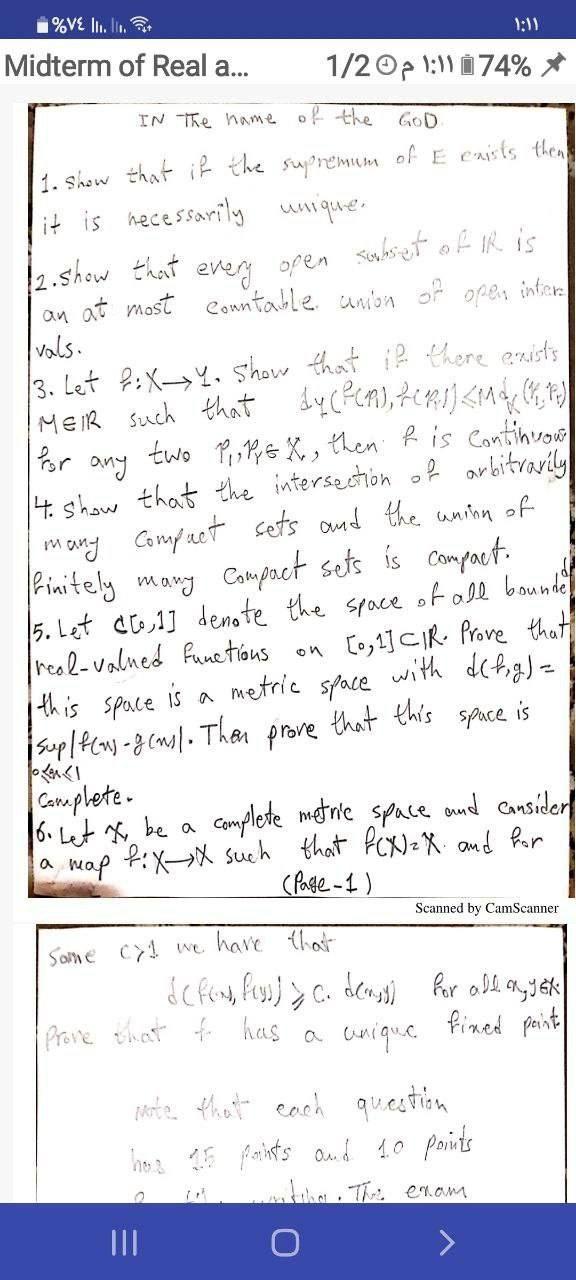 %٧٤
١:١١
Midterm of Real a...
1/2 م ١:١١ 74%
IN The name of the GOD.
1. Show that if the supremum of E exists then
it is necessarily unique.
2. Show that every open subset of IR is
an at most countable union of open inter
vals.
3. Let f: X→Y. Show that if there exists
M∈IR such that
for any two P₁, P₂ ∈ X, then f is Continuous
4. Show that the intersection of arbitrarily
many Compact sets and the union of
finitely many Compact sets is compact.
5. Let C[0,1] denote the space of all bounded
real-valued functions on [0,1]⊂IR. Prove that
this space is a metric space with d(f,g) =
sup|f(x)-g(x)|. Then prove that this space is
0≤x≤1
Complete.
6. Let X, be a complete metric space and consider
a map f: X→X such that f(X)=X. and for
(Page-1)
Scanned by CamScanner
Some C>1 we have that
d(f(x), f(y)) ≥ c. d(x,y) for all x,y∈X.
Prove that f has a unique fixed point.
Note that each question
has 15 points and 10 points
writing. The exam